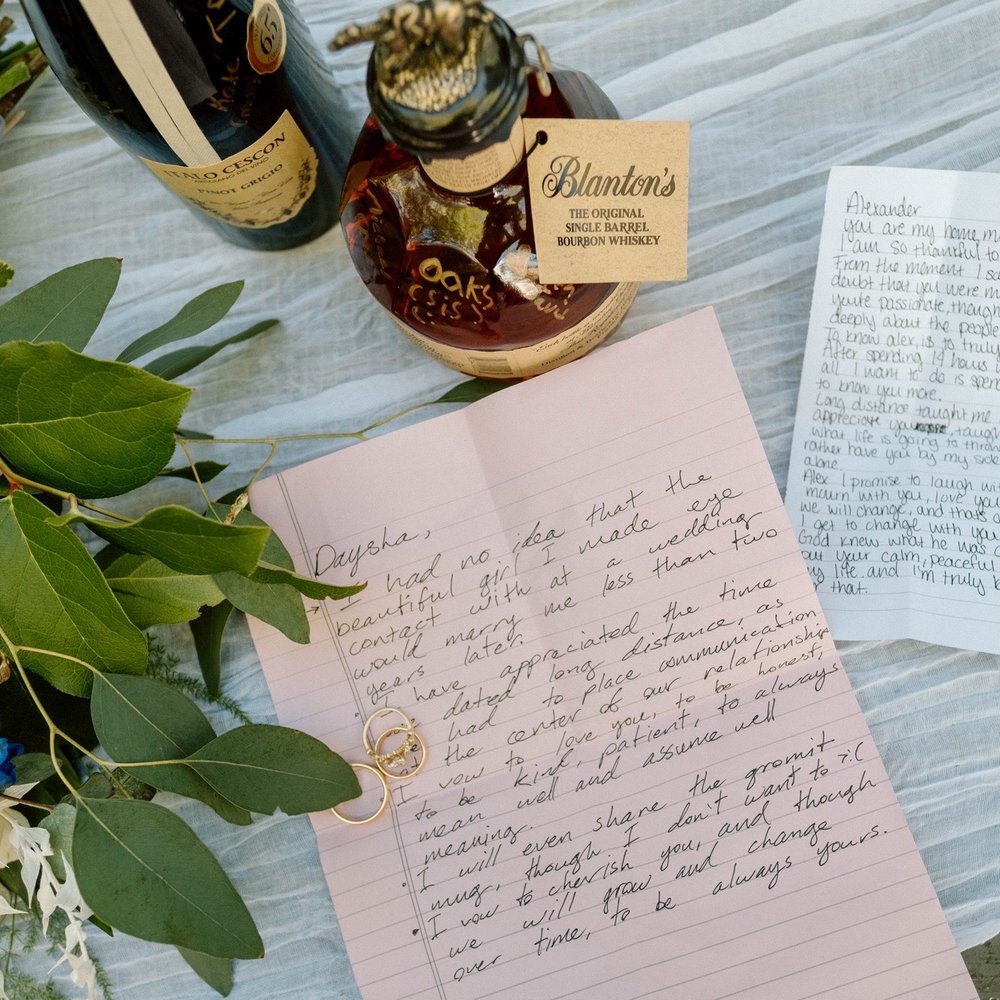 65
ITALO CESCON
PINOT GRIGIO
Blanton's
THE ORIGINAL
SINGLE BARREL
BOURBON WHISKEY
OaKs
Daysha,
I had no idea that the
beautiful girl I made eye
contact with at a wedding
would marry me less than two
years later.
I have appreciated the time
dated long distance, as
had to place communication
the center of our relationship
I vow to love you, to be honest,
to be kind, patient, to always
mean well and assume well
meaning.
I will even share the gromit
mug, though I don't want to :(
I vow to cherish you, and though
we will grow and change
over time, to be always yours.
Alexander
you are my home, m
I am so thankful to
From the moment I sa
doubt that you were m
you're passionate, though
deeply about the people
To know alex, is to truly
After spending 14 hours
all I want to do is spen
to know you more.
Long distance taught me
appreciate you, taug
what life is going to throw
rather have you by my side
alone.
Alex I promise to laugh wi
mourn with you, love you
we will change, and that's
I get to change with you
God knew what he was d
your calm, peaceful
my life. and I'm truly b
that.